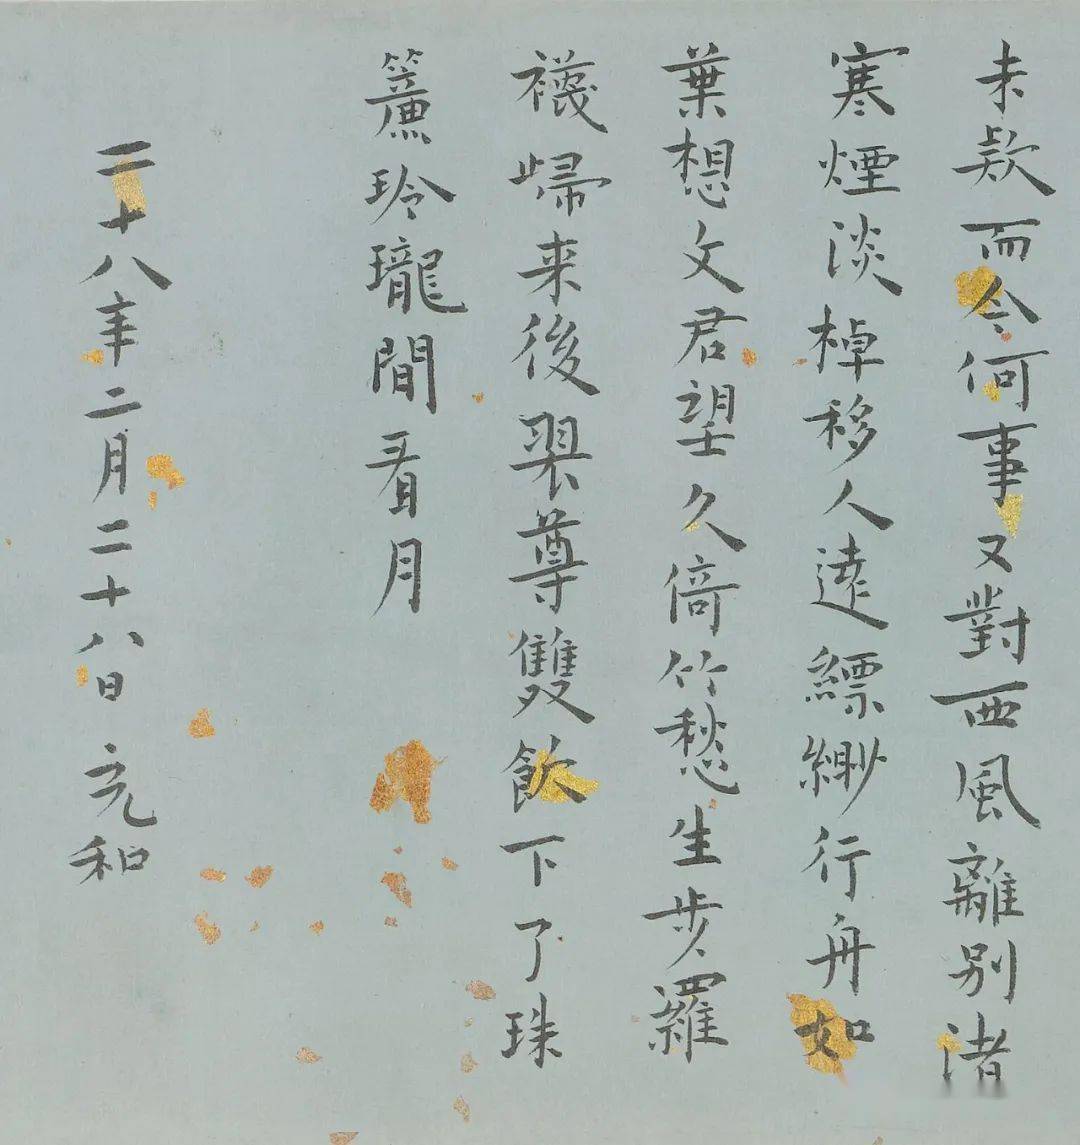 未歇而今何事又對西風離別渚
寒煙淡棹移人遠縹緲行舟如
葉想文君望久倚竹愁生步羅
襪歸来後翠尊雙飲下了珠
簾玲瓏閒看月
二十八年二月二十八日 充和